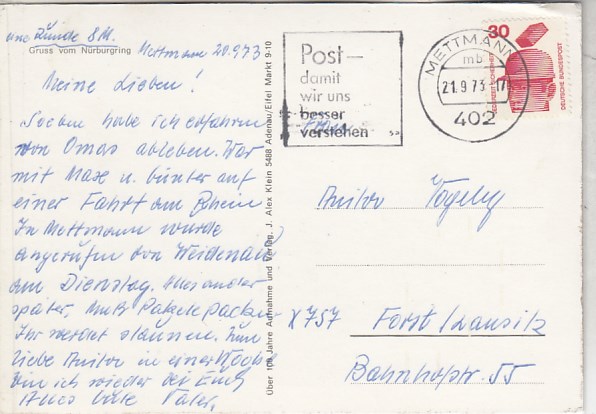 Gruss vom Nürburgring
Mettmann 20.9.73
Meine Lieben!
Soeben habe ich erfahren
von Omas ableben. War
mit Maxe u. Günter auf
einer Fahrt am Rhein
In Mettmann wurde
angerufen von Weidenau
am Dienstag. Alles andere
später, muß Pakete packen
Ihr werdet staunen. Zum
liebe Anitor in einer Woche
bin ich wieder bei Euch
Alles Gute Vater,
Über 100 Jahre Aufnahme und Verlag. J. Alex Klein 5488 Adenau/Eifel Markt 9-10
Post –
damit
wir uns
besser
verstehen
METTMANN
mb
21.9.73-17
402
30
DEUTSCHE BUNDESPOST
Anitor Vogely
X 757 Forst/Lausitz
Bahnhofstr. 55